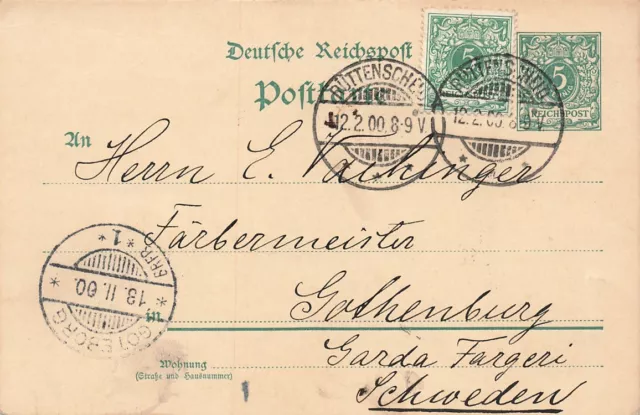 Deutsche Reichspost
Postkarte
5
5
REICHSPOST
RÜTTENSCHEID
12.2.00.8-9V
RÜTTENSCHEID
12.2.00.8-9V
An
Herrn E. Vaihinger
Färbermeister
GÖTEBORG
13.11.00.
* 1 *
in
Gothenburg
Garda Fargeri
Schweden
Wohnung
(Straße und Hausnummer)